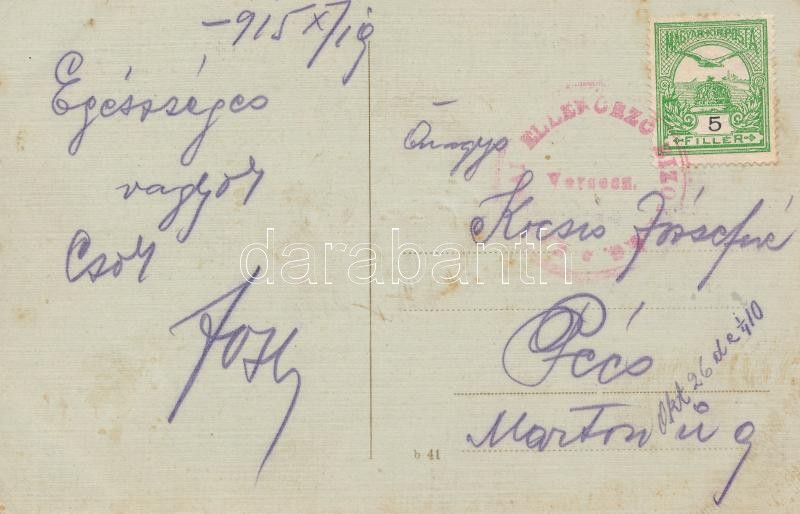 -915 X/19
Egésséges
vagyok
Csók
MAGYAR KIR. POSTA
5
FILLÉR
ELLENŐRZŐ BIZO
Versecz.
Kocsis Józsefné
Pécs
Marton u 9
Okt 26 de 1/4 10
b 41
darabanth